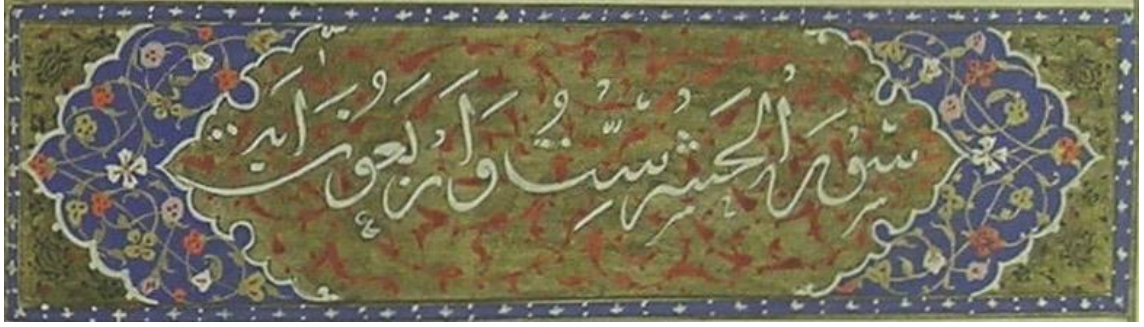 سورة الحشر ستّ وأربعون آية